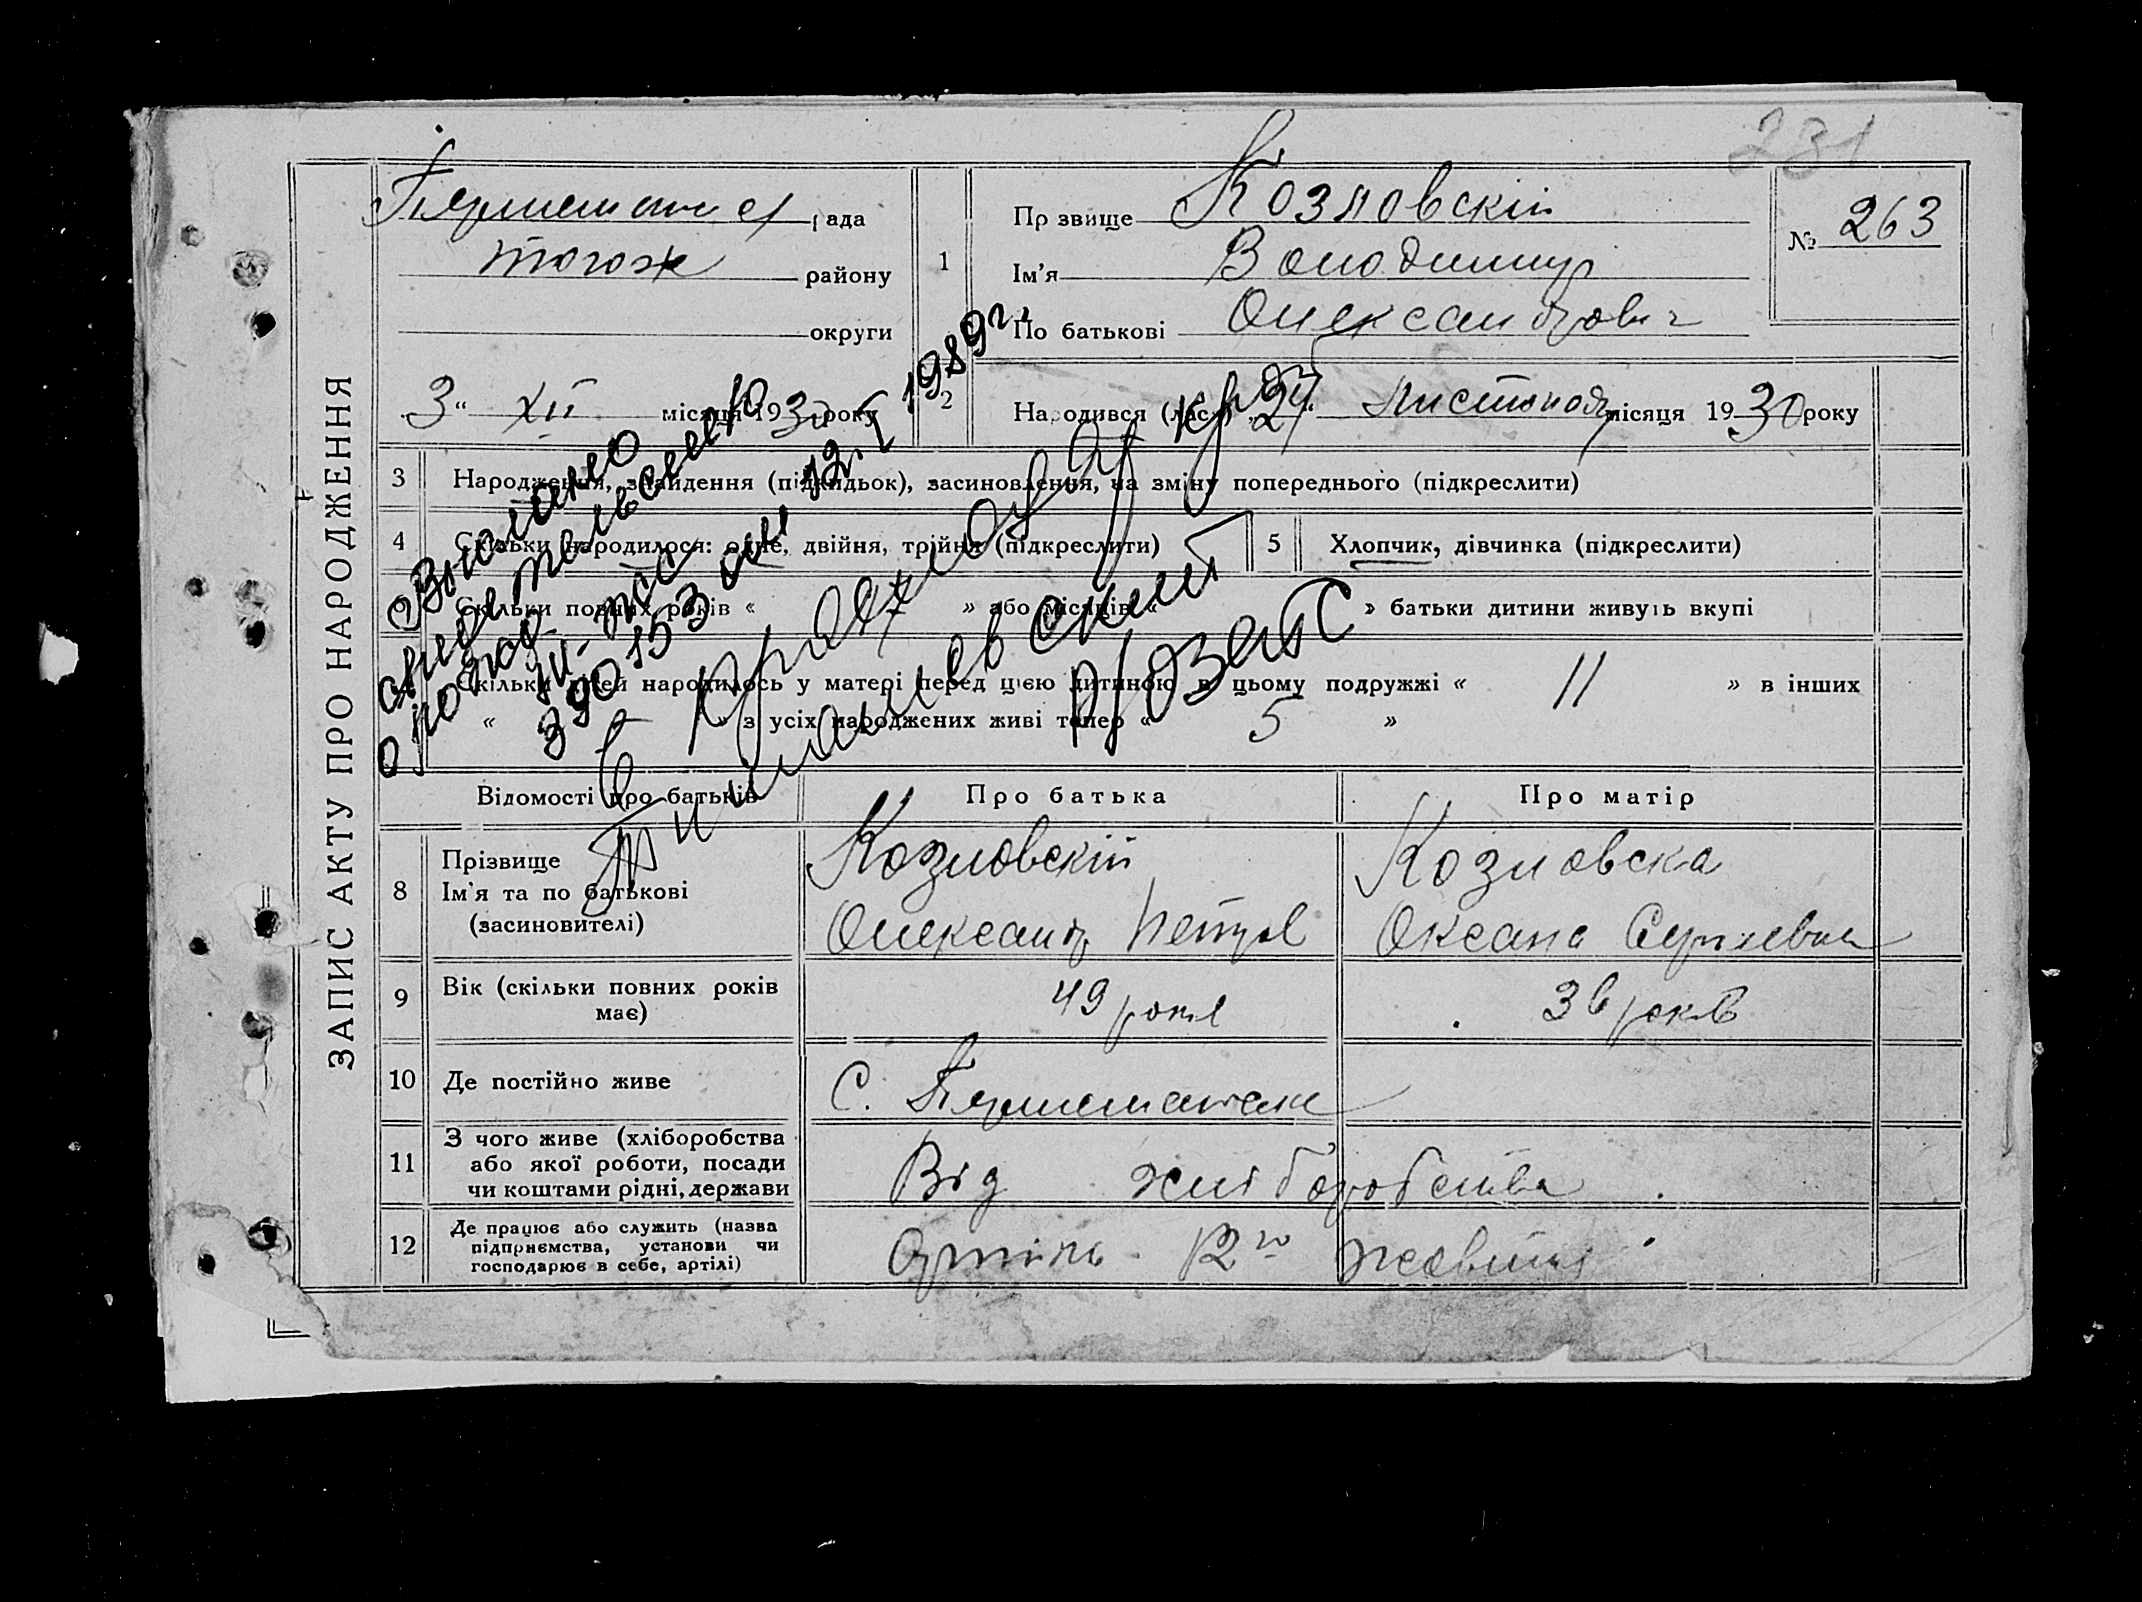 231
ЗАПИС АКТУ ПРО НАРОДЖЕННЯ
рада
тогож району
округи
3 " XII місяця 1930 року
1
Прізвище Козловскій
Ім'я Володимир
По батькові Олександрович
№ 263
2 Народився (лась) „24" Листопада місяця 1930 року
3 Народження, знайдення (підкидьок), засиновлення, на зміну попереднього (підкреслити)
4 Скільки народилося: одне, двійня, трійня (підкреслити)
5 Хлопчик, дівчинка (підкреслити)
Скільки повних років « » або місяців « » батьки дитини живуть вкупі
Скільки дітей народилось у матері перед цією дитиною в цьому подружжі « 11 » в інших
« » з усіх народжених живі тепер « 5 »
Выслано
свидетельство
о рожд
III-
390153 от 12.I 1989г.
в
Тимашевский
р/ЗАГС
Відомості про батьків Про батька Про матір
8 Прізвище
Ім'я та по батькові
(засиновителі)
Козловскій
Олександр Петров
Козловска
Оксана Сергіевна
9 Вік (скільки повних років
має)
49 років
36 років
10 Де постійно живе
С.
11 З чого живе (хліборобства
або якої роботи, посади
чи коштами рідні, держави
Від хліборобства
12 Де працює або служить (назва
підприємства, установи чи
господарює в себе, артілі)
Артіль 12го жовтня